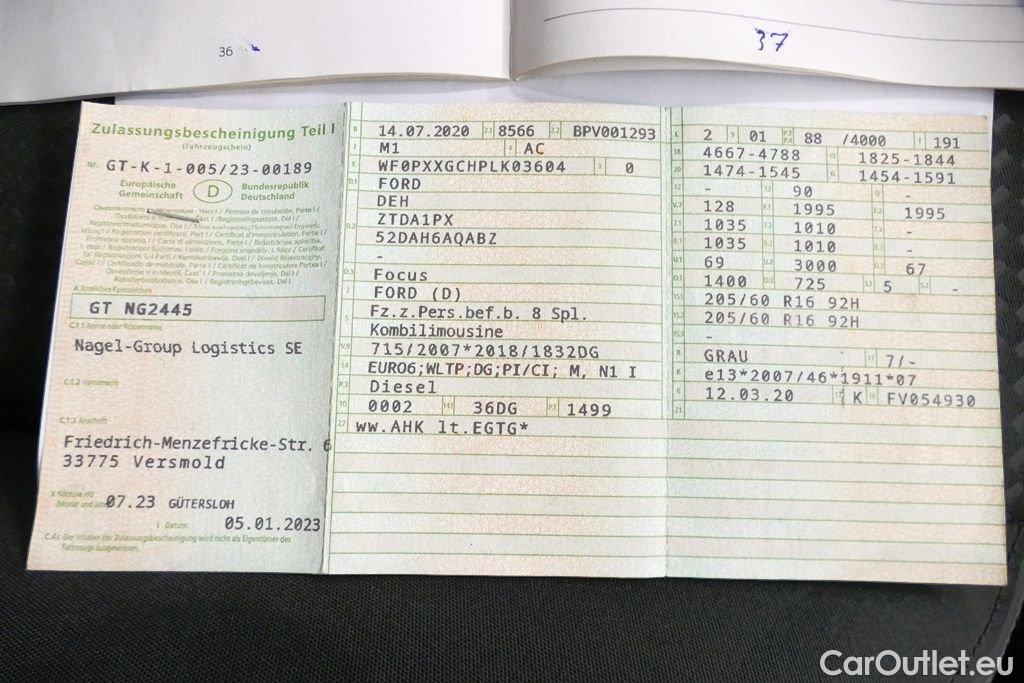 36
37
Zulassungsbescheinigung Teil I
(Fahrzeugschein)
Nr. GT-K-1-005/23-00189
Europäische Gemeinschaft
D
Bundesrepublik Deutschland
A Amtliches Kennzeichen
GT NG2445
C.1.1 Name oder Firmenname
Nagel-Group Logistics SE
C.1.2 Vorname(n)
C.1.3 Anschrift
Friedrich-Menzefricke-Str. 6
33775 Versmold
X Nächste HU
(Monat und Jahr) 07.23 GÜTERSLOH
I Datum: 05.01.2023
C.4c Der Inhaber der Zulassungsbescheinigung wird nicht als Eigentümer des
Fahrzeugs ausgewiesen.
B 14.07.2020 2.1 8566 2.2 BPV001293
J M1 4 AC
E WF0PXXGCHPLK03604 3 0
D.1 FORD
DEH
ZTDA1PX
D.2 52DAH6AQABZ
-
D.3 Focus
2 FORD (D)
5 Fz.z.Pers.bef.b. 8 Spl.
Kombilimousine
V.9 715/2007*2018/1832DG
14 EURO6;WLTP;DG;PI/CI; M, N1 I
P.3 Diesel
10 0002 14.1 36DG P.1 1499
22 ww.AHK lt.EGTG*
L 2 9 01 P.2 P.4 88 /4000 T 191
18 4667-4788 19 1825-1844
20 1474-1545 G 1454-1591
12 - 13 90 Q -
V.7 128 F.1 1995 F.2 1995
7.1 1035 7.2 1010 7.3 -
8.1 1035 8.2 1010 8.3 -
U.1 69 U.2 3000 U.3 67
O.1 1400 O.2 725 S.1 5 S.2 -
15.1 205/60 R16 92H
15.2 205/60 R16 92H
15.3 -
R GRAU 11 7/-
K e13*2007/46*1911*07
6 12.03.20 17 K 16 FV054930
21
CarOutlet.eu